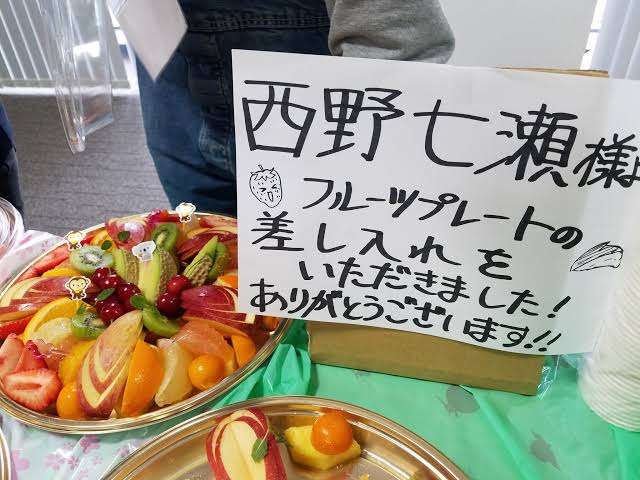 西野七瀬様
フルーツプレートの
差し入れを
いただきました!
ありがとうございます!!